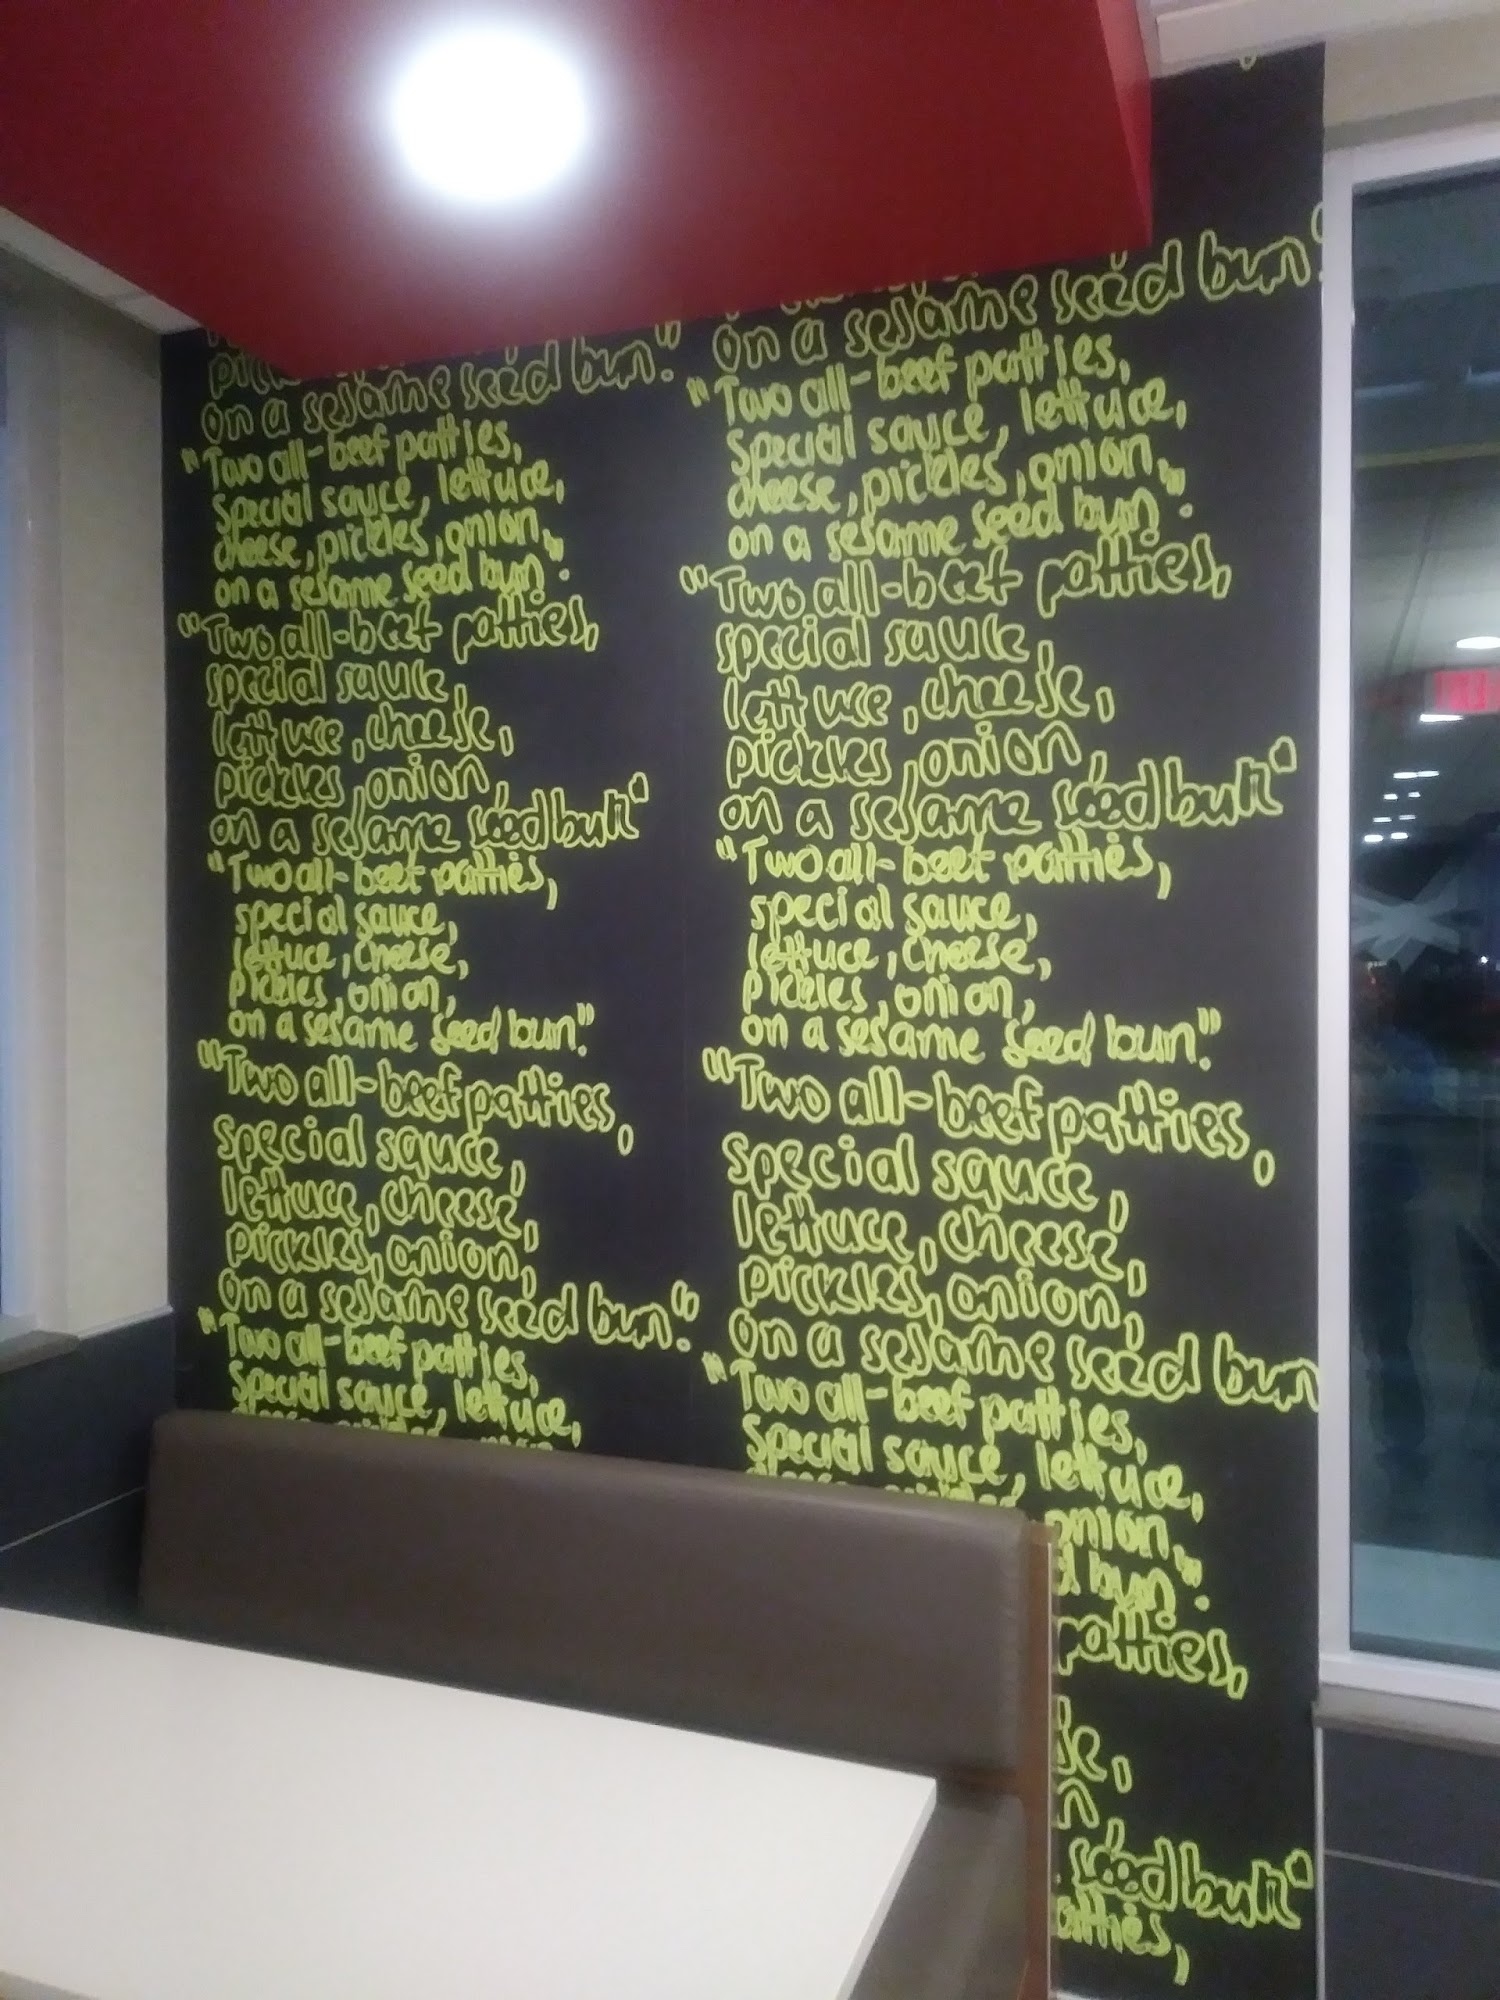 on a sesame seed bun."
"Two all-beef patties,
special sauce, lettuce,
cheese, pickles, onion,
on a sesame seed bun".
"Two all-beef patties,
special sauce,
lettuce, cheese,
pickles, onion,
on a sesame seed bun"
"Two all-beef patties,
special sauce,
lettuce, cheese,
pickles, onion,
on a sesame seed bun."
"Two all-beef patties,
special sauce,
lettuce, cheese,
pickles, onion,
on a sesame seed bun."
"Two all-beef patties,
special sauce, lettuce,
on a sesame seed bun."
"Two all-beef patties,
special sauce, lettuce,
cheese, pickles, onion,
on a sesame seed bun".
"Two all-beef patties,
special sauce,
lettuce, cheese,
pickles, onion,
on a sesame seed bun"
"Two all-beef patties,
special sauce,
lettuce, cheese,
pickles, onion,
on a sesame seed bun."
"Two all-beef patties,
special sauce,
lettuce, cheese,
pickles, onion,
on a sesame seed bun
"Two all-beef patties,
special sauce, lettuce,
onion,
bun".
patties,
seed bun"